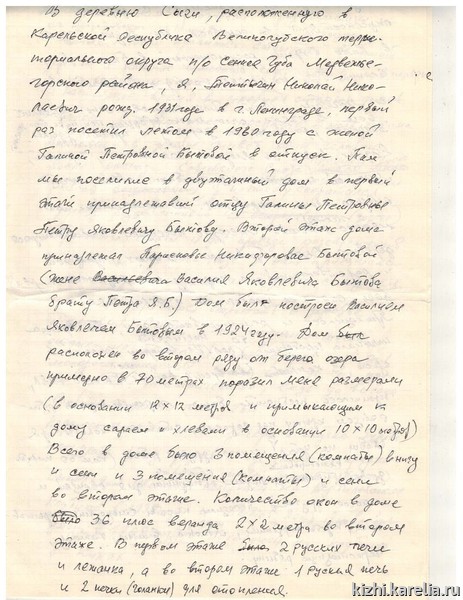 В деревню Сычи, расположенную в
Карельской Республика Великогубского терри-
ториального округа п/о Сенная Губа Медвежье-
горского района, я, Николай Нико-
лаевич рожд. 1931 годе в г. Ленинграде, первый
раз посетил летом в 1960 году с женой
Галиной Петровной Бытовой в отпуск. Там
мы поселились в двухэтажный дом в первый
этаж принадлежавший отцу Галины Петровны
Петру Яковлевичу Бытову. Второй этаж дома
принадлежал Никифоровне Бытовой
(жене Василия Яковлевича Бытова
брату Петра Я.Б.) Дом был построен Василием
Яковлевичем Бытовым в 1924 году. Дом был
расположен во втором ряду от берега озера
примерно в 70 метрах поразил меня размерами
(в основании 12х12 метров и примыкающим к
дому сараем и хлевами в основании 10х10 метров)
Всего в доме было 3 помещения (комнаты) внизу
и сени и 3 помещения (комнаты) и сени
во втором этаже. Количество окон в доме
было 36 плюс веранда 2х2 метра во втором
этаже. В первом этаже было 2 русских печи
и лежанка, а во втором этаже 1 русская печь
и 2 печки (голанки) для отопления.
kizhi.karelia.ru